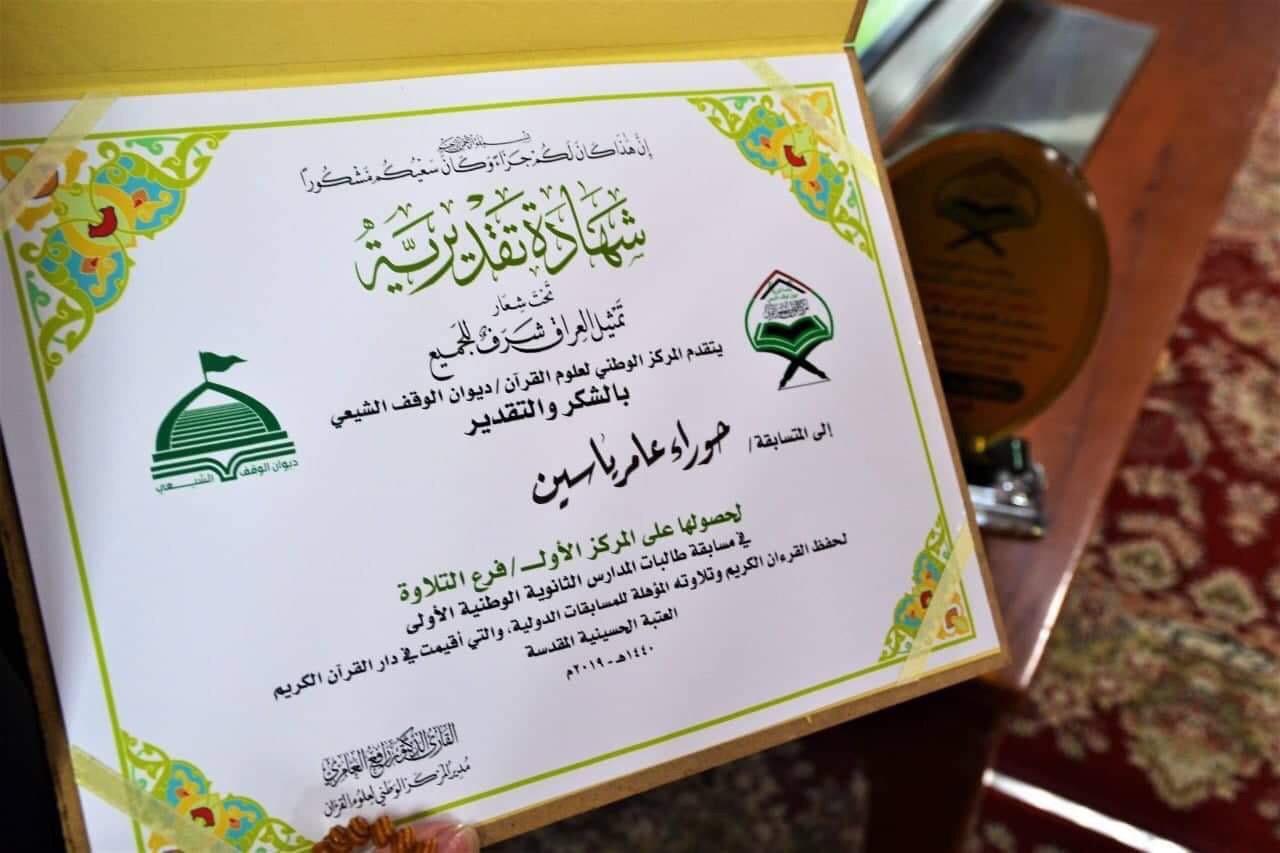 بسم الله الرحمن الرحيم
إِنَّ هَٰذَا كَانَ لَكُمْ جَزَاءً وَكَانَ سَعْيُكُم مَّشْكُورًا
شهادة تقديرية
تحت شعار
تمثيل العراق شرف للجميع
يتقدم المركز الوطني لعلوم القرآن / ديوان الوقف الشيعي
بالشكر والتقدير
إلى المتسابقة / حوراء عامر ياسين
لحصولها على المركز الأولـ / فرع التلاوة
في مسابقة طالبات المدارس الثانوية الوطنية الأولى
لحفظ القرءان الكريم وتلاوته المؤهلة للمسابقات الدولية، والتي أقيمت في دار القرآن الكريم
العتبة الحسينية المقدسة
١٤٤٠هـ - ٢٠١٩م
القارئ الدكتور رافع العامري
مدير المركز الوطني لعلوم القرآن
ديوان الوقف الشيعي